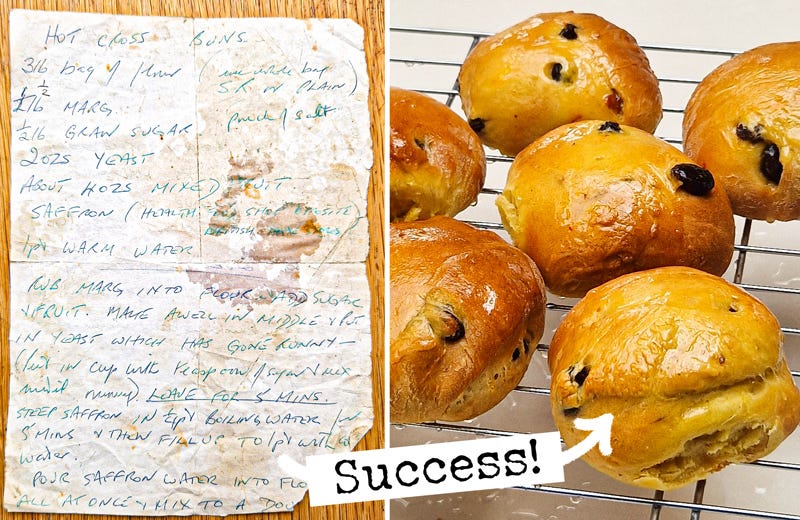 HOT CROSS BUNS
3lb bag of flour (use whole bag
S.R. OR PLAIN)
1/2 lb MARG
pinch of salt
1/2 lb GRAN SUGAR
2 OZS YEAST
ABOUT 4 OZS MIXED FRUIT
SAFFRON (HEALTH FOOD SHOP OPPOSITE
BRITISH HOME
1pt WARM WATER
RUB MARG INTO FLOUR. ADD SUGAR
& FRUIT. MAKE A WELL IN MIDDLE & PUT
IN YEAST WHICH HAS GONE RUNNY -
(put in cup with teaspoon of sugar & mix
until runny). LEAVE FOR 5 MINS.
STEEP SAFFRON IN 1/2 pt BOILING WATER
5 MINS & THEN FILL UP TO 1pt with
water.
POUR SAFFRON WATER INTO FLO
ALL AT ONCE & MIX TO A DOU
Success!